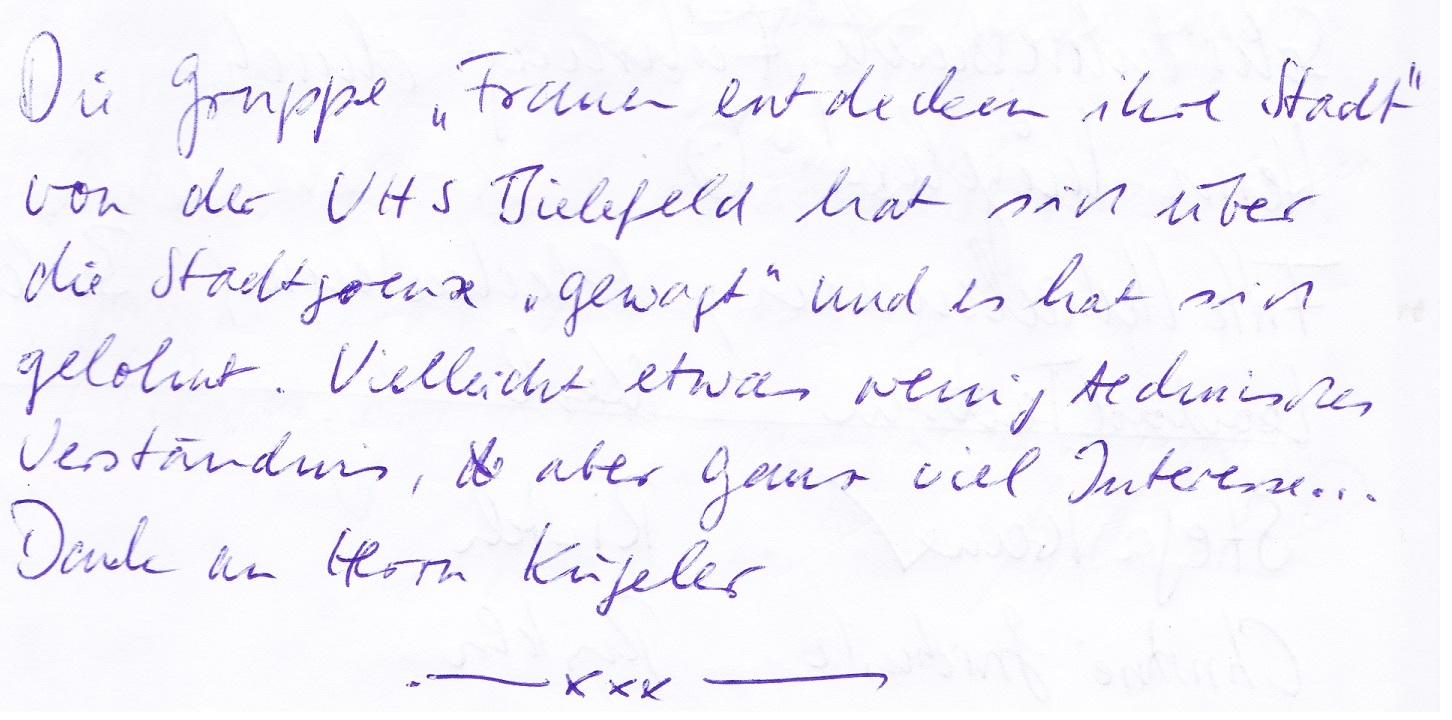 Die Gruppe „Frauen entdecken ihre Stadt"
von der VHS Bielefeld hat sich über
die Stadtgrenze „gewagt" und es hat sich
gelohnt. Vielleicht etwas wenig technisches
Verständnis, aber ganz viel Interesse...
Dank an Herrn Kügeler
xxx